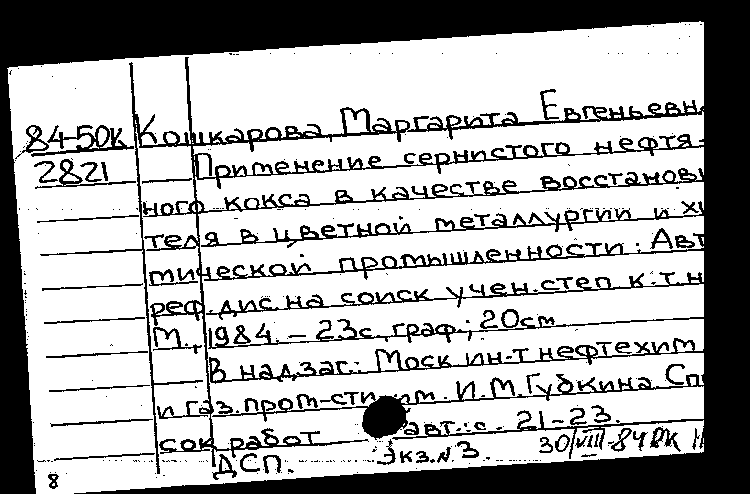 84-50к Кошкарова, Маргарита Евгеньевн
2821 Применение сернистого нефтя-
ного кокса в качестве восстанови
теля в цветной металлургии и хи
мической промышленности: Авт
реф. дис. на соиск учен. степ к.т.н
М., 1984. – 23с, граф.; 20см
В надзаг.: Моск ин-т нефтехим
и газ. пром-сти им. И.М. Губкина. Спи
сок работ авт.: с. 21-23.
ДСП. Экз.N 3. 30/VIII-84
8